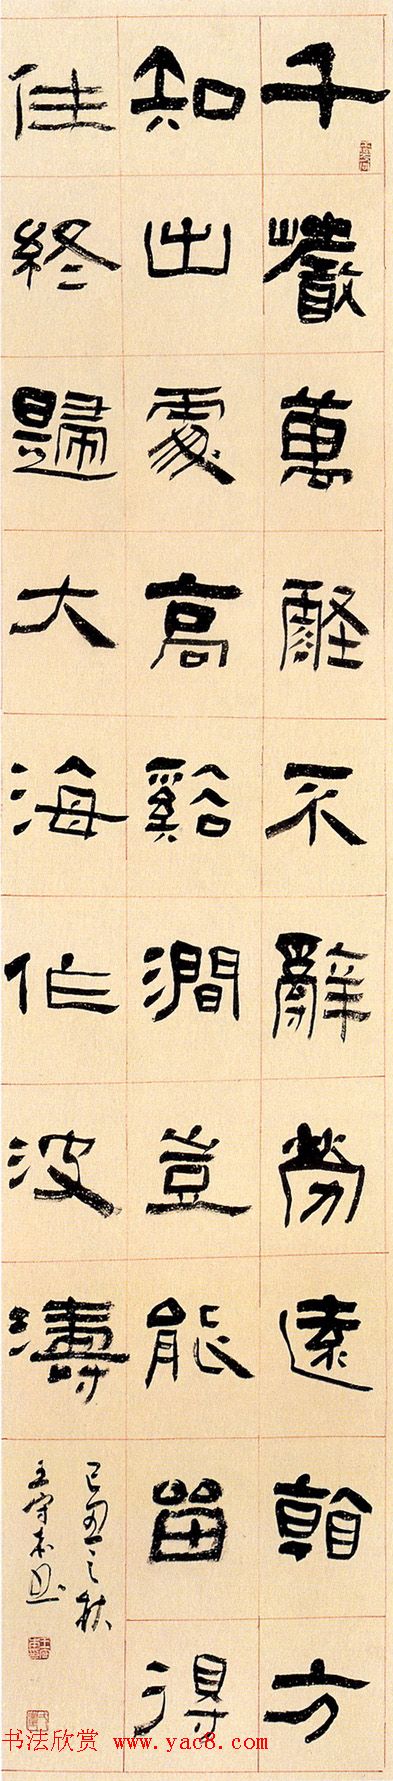 千巖萬壑不辭勞遠看方
知出處高谿澗豈能留得
住終歸大海作波濤
己丑之秋
王守本书
书法欣赏 www.yac8.com